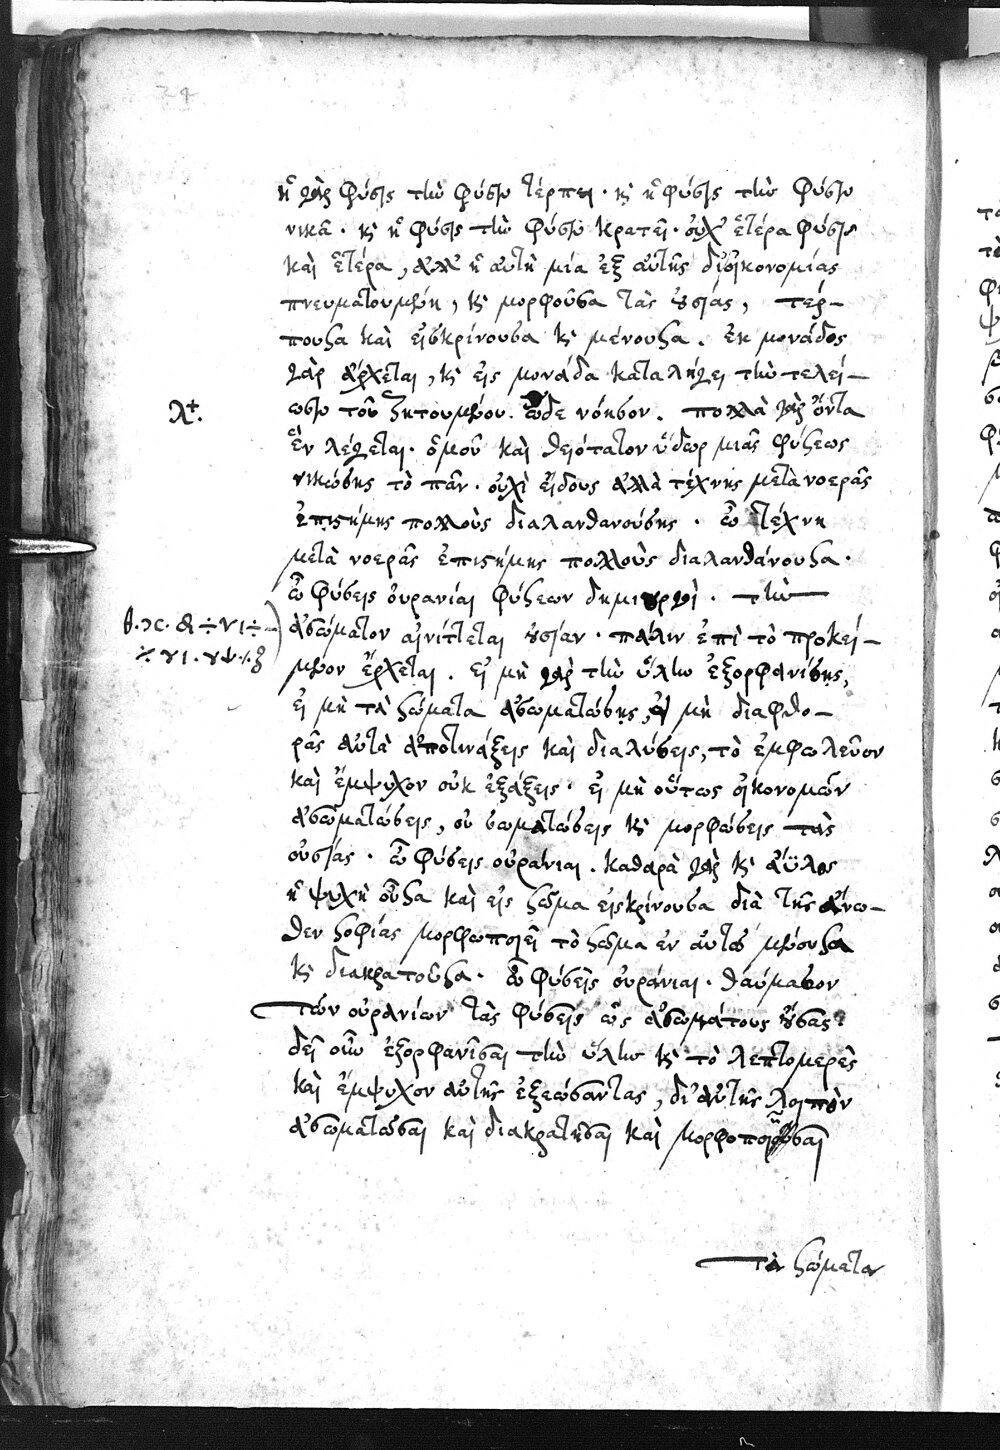 ἡ γὰρ φύσις τὴν φύσιν τέρπει· κὶ ἡ φύσις τὴν φύσιν
νικᾶ· κὶ ἡ φύσις τὴν φύσιν κρατεῖ· οὐχ ἑτέρα φύσις
καὶ ἑτέρα, ἀλλ' ἡ αὐτὴ μία ἐξ αὐτῆς δι' οἰκονομίας
πνευματουμένη, κὶ μορφοῦσα τὰς οὐσίας, τέρ-
πουσα καὶ εἰσκρίνουσα κὶ μένουσα. ἐκ μονάδος
γὰρ ἄρχεται, κὶ εἰς μονάδα καταλήγει τὴν τελεί-
ωσιν τοῦ ζητουμένου. ὧδε νόησον. πολλὰ γὰρ ὄντα
ἓν λέγεται. ὁμοῦ καὶ θειότατον ὕδωρ μιᾶς φύσεως
νικώσης τὸ πᾶν. οὐχὶ εἴδους ἀλλὰ τέχνης μετὰ νοερᾶς
ἐπιστήμης πολλοὺς διαλανθανούσης. ὦ τέχνη
μετὰ νοερᾶς ἐπιστήμης πολλοὺς διαλανθάνουσα.
ὦ φύσεις οὐράνιαι φύσεων δημιουργοὶ. τὴν
ἀσώματον αἰνίττεται οὐσίαν. πάλιν ἐπὶ τὸ προκεί-
μενον ἔρχεται. εἰ μὴ γὰρ τὴν ὕλην ἐξορφανίσης,
εἰ μὴ τὰ σώματα ἀσωματώσης, εἰ μὴ διαφθο-
ρᾶς αὐτὰ ἀποτινάξεις καὶ διαλύσεις, τὸ ἐμφωλεῦον
καὶ ἔμψυχον οὐκ ἐξάξεις. εἰ μὴ οὕτως οἰκονομῶν
ἀσωματώσεις, οὐ σωματώσεις κὶ μορφώσεις τὰς
οὐσίας. ὦ φύσεις οὐράνιαι. καθαρὰ γὰρ κὶ ἄϋλος
ἡ ψυχὴ οὖσα καὶ εἰς σῶμα εἰσκρίνουσα διὰ τῆς ἄνω-
θεν σοφίας μορφωποιεῖ τὸ σῶμα ἐν αὐτῷ μένουσα
κὶ διακρατοῦσα. ὦ φύσεις οὐράνιαι. θαύμασον
τῶν οὐρανίων τὰς φύσεις ὡς ἀσωμάτους οὔσας.
δεῖ οὖν ἐξορφανῖσαι τὴν ὕλην κὶ τὸ λεπτομερὲς
καὶ ἔμψυχον αὐτῆς ἐξεώσαντας, δι' αὐτῆς λοιπὸν
ἀσωματῶσαι καὶ διακρατῆσαι καὶ μορφοποιῆσαι
τὰ σώματα